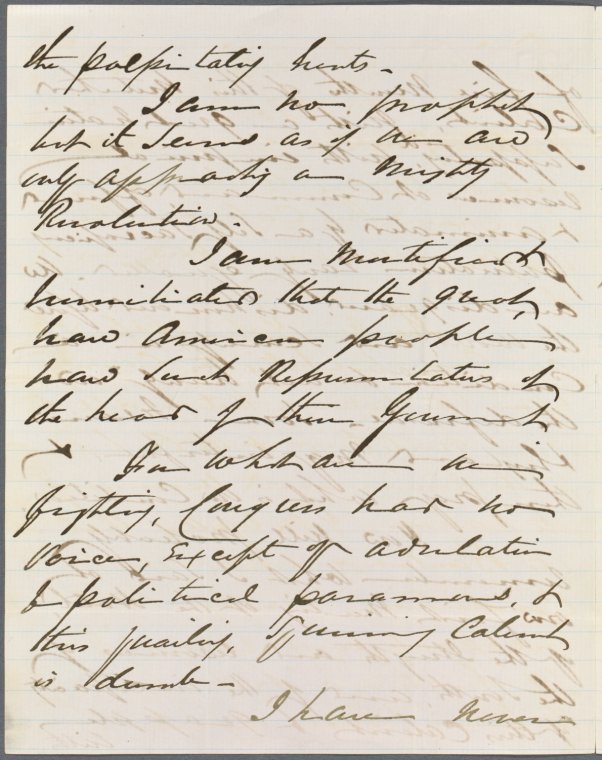 the palpitating hearts -
I am no prophet
but it seems as if we are
only approaching a mighty
Revolution.
I am mortified &
humiliated that the great,
American people
have such Representatives of
the head of their Government
For what are we
fighting, Congress has no
voice, except of adulation
& political &
this Cabinet
is dumb -
I have never